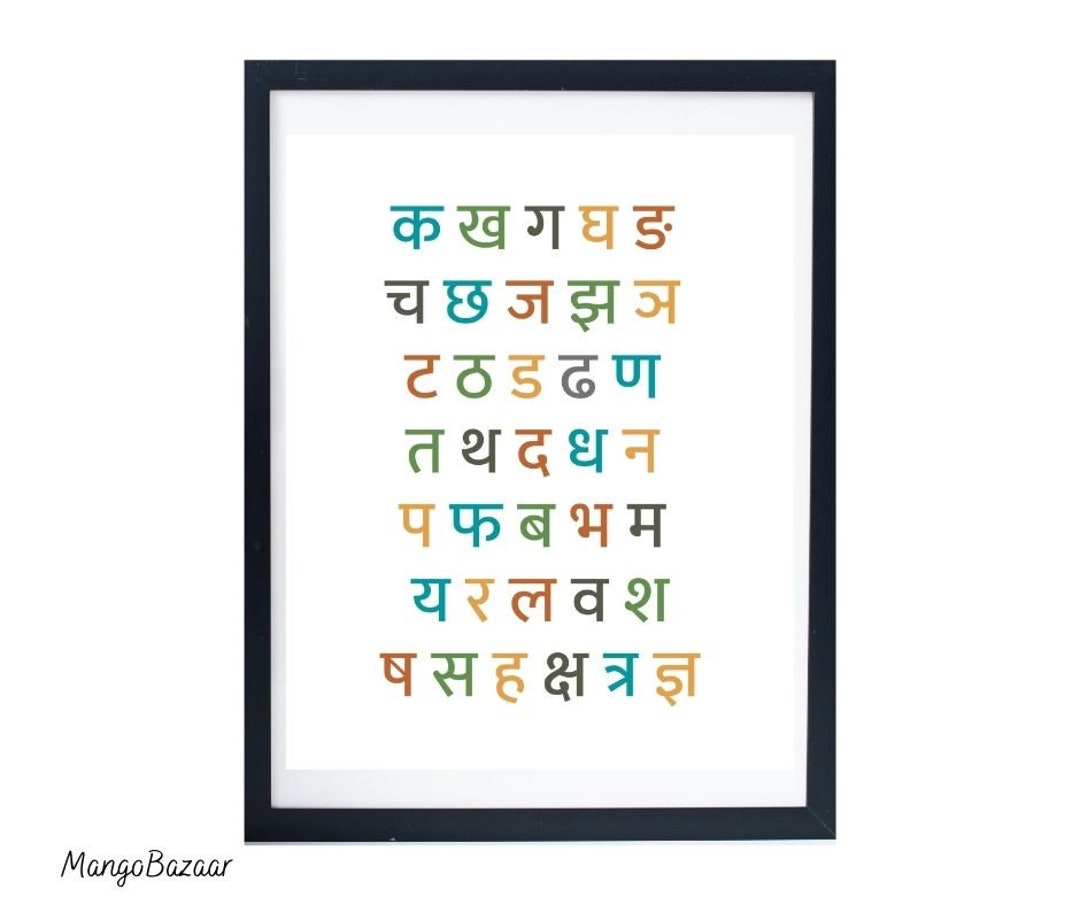 क ख ग घ ङ
च छ ज झ ञ
ट ठ ड ढ ण
त थ द ध न
प फ ब भ म
य र ल व श
ष स ह क्ष त्र ज्ञ
MangoBazaar